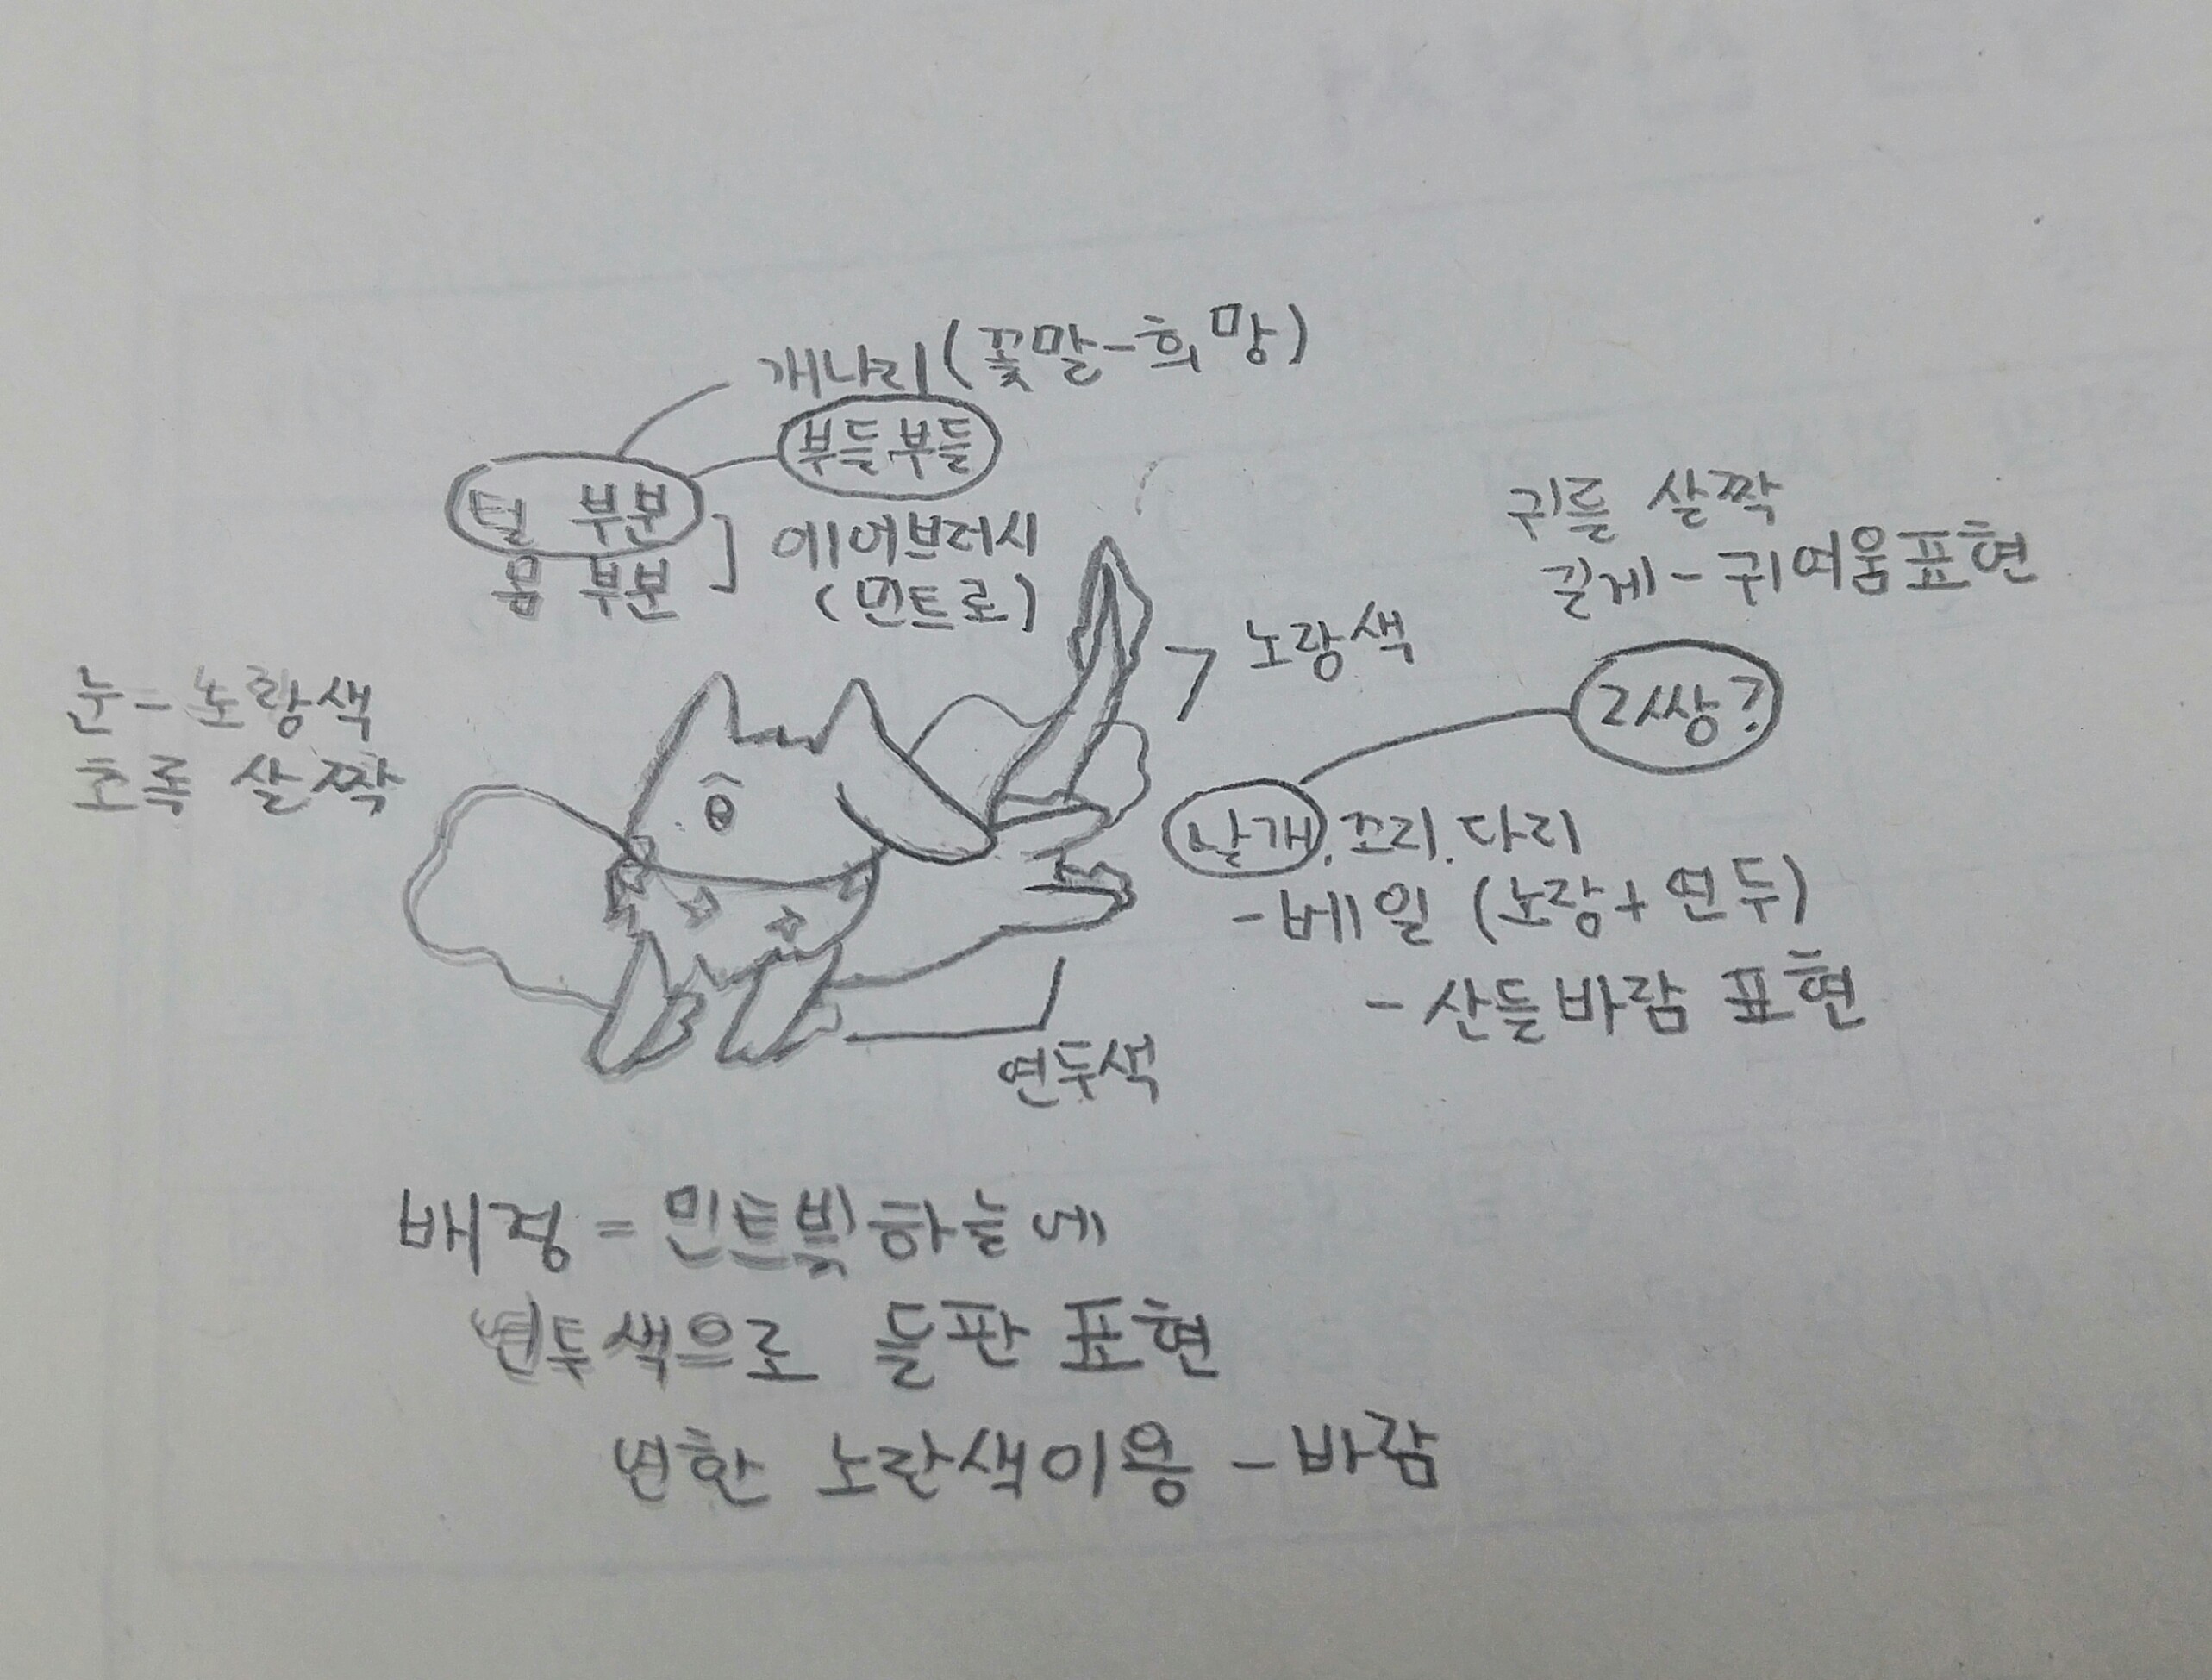 개나리(꽃말-희망)
부들부들
털 부분
몸 부분
에어브러시
(민트로)
귀를 살짝
길게-귀여움표현
노랑색
눈=노랑색
초록 살짝
2쌍?
날개.꼬리.다리
-베일 (노랑+연두)
-산들바람 표현
연두색
배경=민트빛하늘에
연두색으로 들판 표현
연한 노란색이용-바람